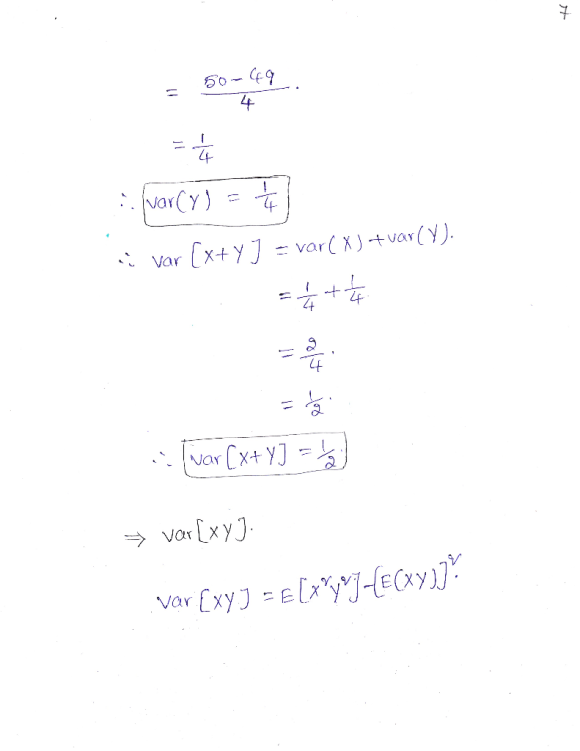 7
= 50-49 / 4 .
= 1/4
∴ var(Y) = 1/4
∴ var [X+Y] = var(X)+var(Y).
= 1/4 + 1/4
= 2/4 .
= 1/2 .
∴ var[X+Y] = 1/2
⇒ var[XY].
var [XY] = E[X²Y²]-[E(XY)]².